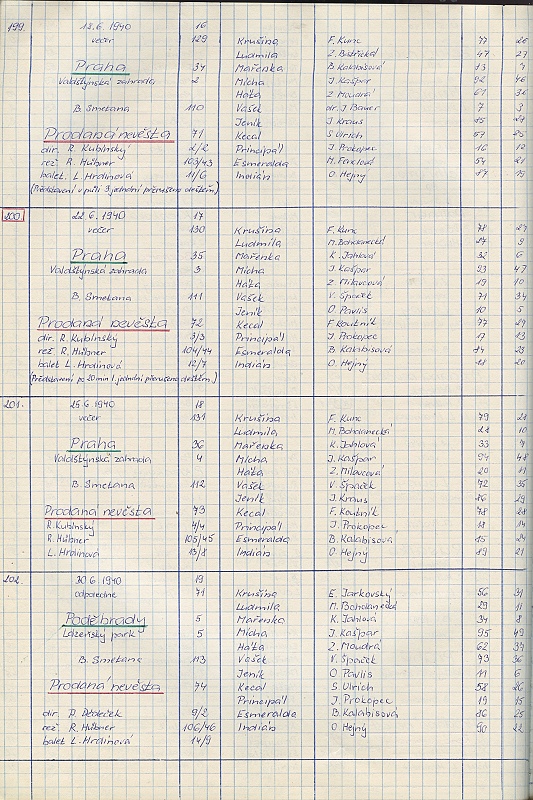 199. 18.6 1940 16
večer 129 Krušina F. Kunc 77 26
Ludmila Z. Bstřická 47 27
Praha 34 Mařenka B. Kalabisová 13 7
Valdštýnská zahrada 2 Mícha J. Kašpar 92 46
Háta Z. Moudrá 61 36
B. Smetana 110 Vašek dr. J. Bauer 7 3
Jeník J. Kraus 85 27
Prodaná nevěsta 71 Kecal S Ulrich 57 25
dir. R. Kubínský 2/2 Principál J. Prokopec 16 12
rež R. Hübner 103/43 Esmeralda M. Faxlová 54 21
balet. L. Hrdinová 11/6 Indián O. Hejný 87 19
(Představení v půli 3. jednání přerušeno deštěm)
200. 22.6. 1940 17
večer 130 Krušina F. Kunc 78 27
Ludmila M. Bohdanecká 27 9
Praha 35 Mařenka K. Jahlová 32 6
Valdštýnská zahrada 3 Mícha J. Kašpar 93 47
Háta Z. Milavcová 19 10
B. Smetana 111 Vašek V. Špaček 71 34
Jeník O. Pavlis 10 5
Prodaná nevěsta 72 Kecal F. Koutník 77 27
dir. R. Kubínský 3/3 Principál J. Prokopec 17 13
rež R. Hübner 104/44 Esmeralda B. Kalabisová 14 23
balet L. Hrdinová 12/7 Indián O. Hejný 88 20
(Představení po 20 min 1. jednání přerušeno deštěm.)
201. 25.6 1940 18
večer 131 Krušina F. Kunc 79 28
Ludmila M. Bohdanecká 28 10
Praha 36 Mařenka K. Jahlová 33 7
Valdštýnská zahrada 4 Mícha J. Kašpar 94 48
Háta Z. Milavcová 20 11
B. Smetana 112 Vašek V. Špaček 72 35
Jeník J. Kraus 86 29
Prodaná nevěsta 73 Kecal F. Koutník 78 28
R. Kubínský 4/4 Principál J. Prokopec 18 14
R. Hübner 105/45 Esmeralda B. Kalabisová 15 24
L. Hrdinová 13/8 Indián O. Hejný 19 21
202. 30.6 1940 19
odpoledne 71 Krušina E. Jarkovský 56 31
Ludmila M. Bohdanecká 29 11
Poděbrady 5 Mařenka K. Jahlová 34 8
Lázeňský park 5 Mícha J. Kašpar 95 49
Háta Z. Moudrá 62 37
B. Smetana 113 Vašek V. Špaček 73 36
Jeník O. Pavlis 11 6
Prodaná nevěsta 74 Kecal S Ulrich 58 26
Principál J. Prokopec 19 15
dir. 9/2 Esmeralda B. Kalabisová 16 25
rež R. Hübner 106/46 Indián O. Hejný 90 22
balet L. Hrdinová 14/9